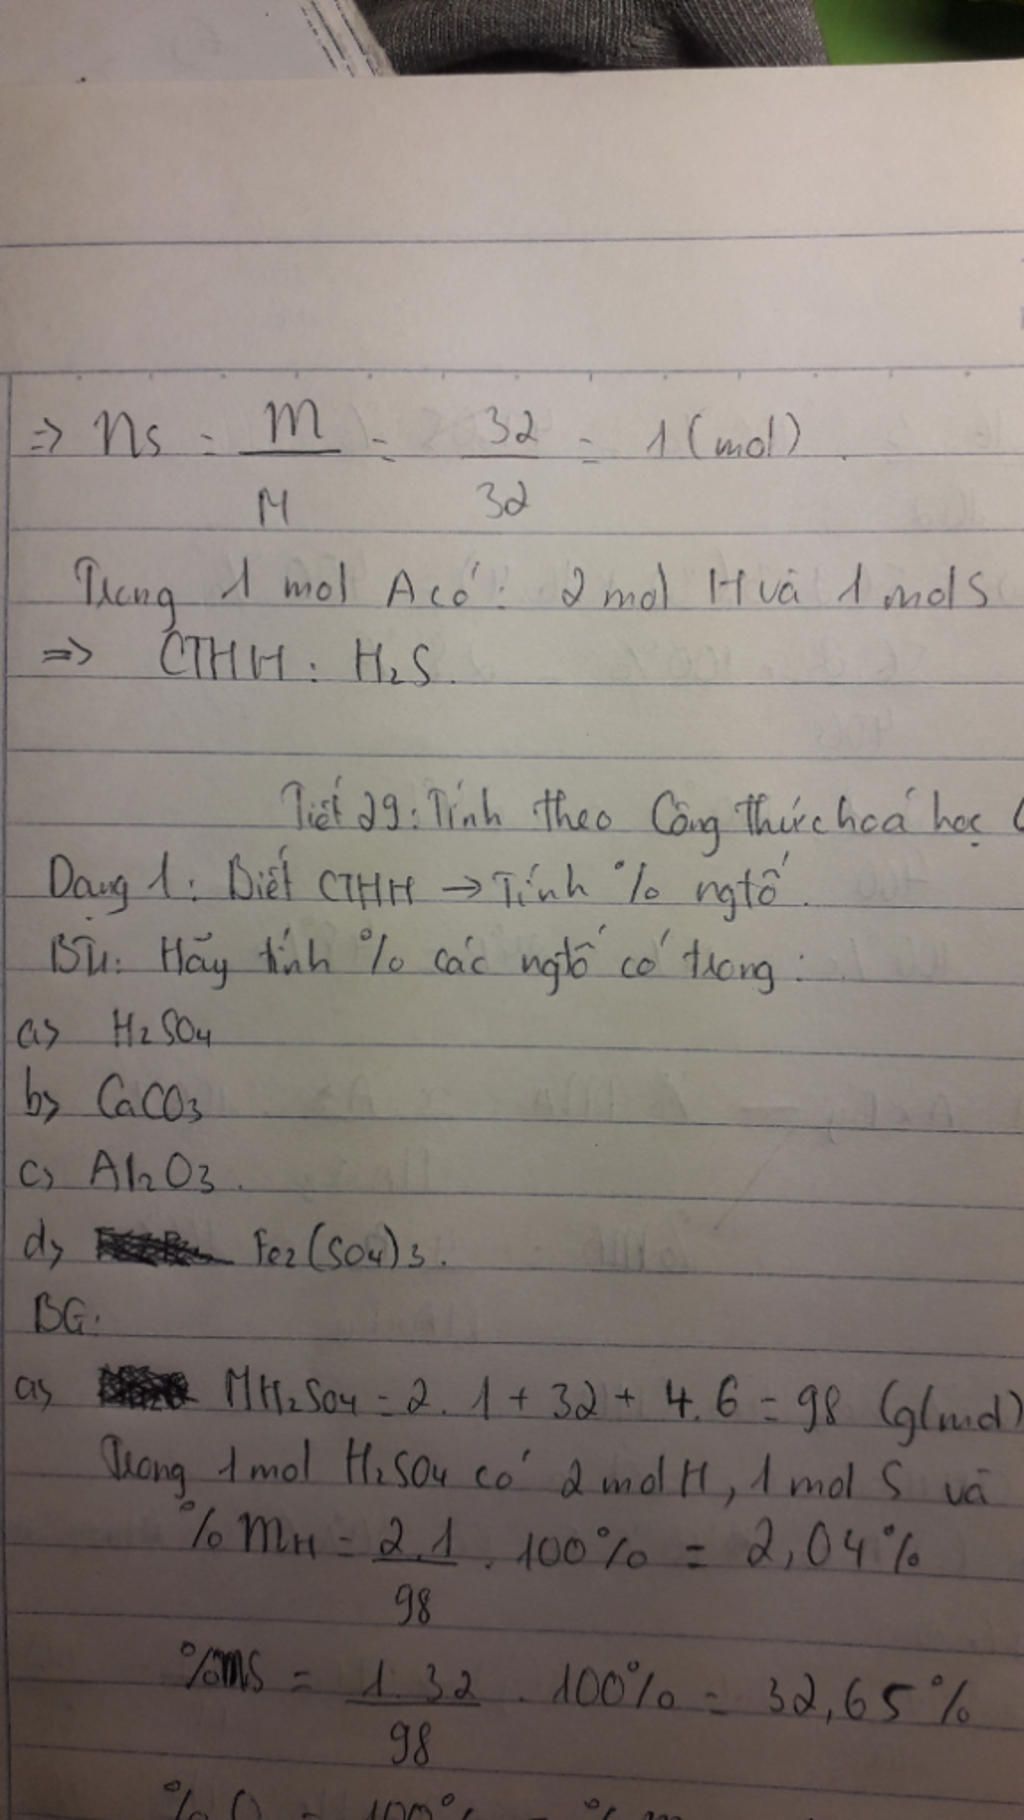 => ns = m/M = 32/32 = 1 (mol).
Trong 1 mol A có: 2 mol H và 1 mol S
=> CTHH: H₂S.
Tiết 29: Tính theo Công thức hoá học (
Dạng 1: Biết CTHH → Tính % ngtố.
Hãy tính % các ngtố có trong:
a> H₂SO₄
b> CaCO₃
c> Al₂O₃.
d> Fe₂(SO₄)₃.
BG:
a> MH₂SO₄ = 2.1 + 32 + 4.6 = 98 (g/mol)
Trong 1 mol H₂SO₄ có 2 mol H, 1 mol S và
% mH = 2.1/98 . 100% = 2,04%
% mS = 1.32/98 . 100% = 32,65%
% O = 100% - % m